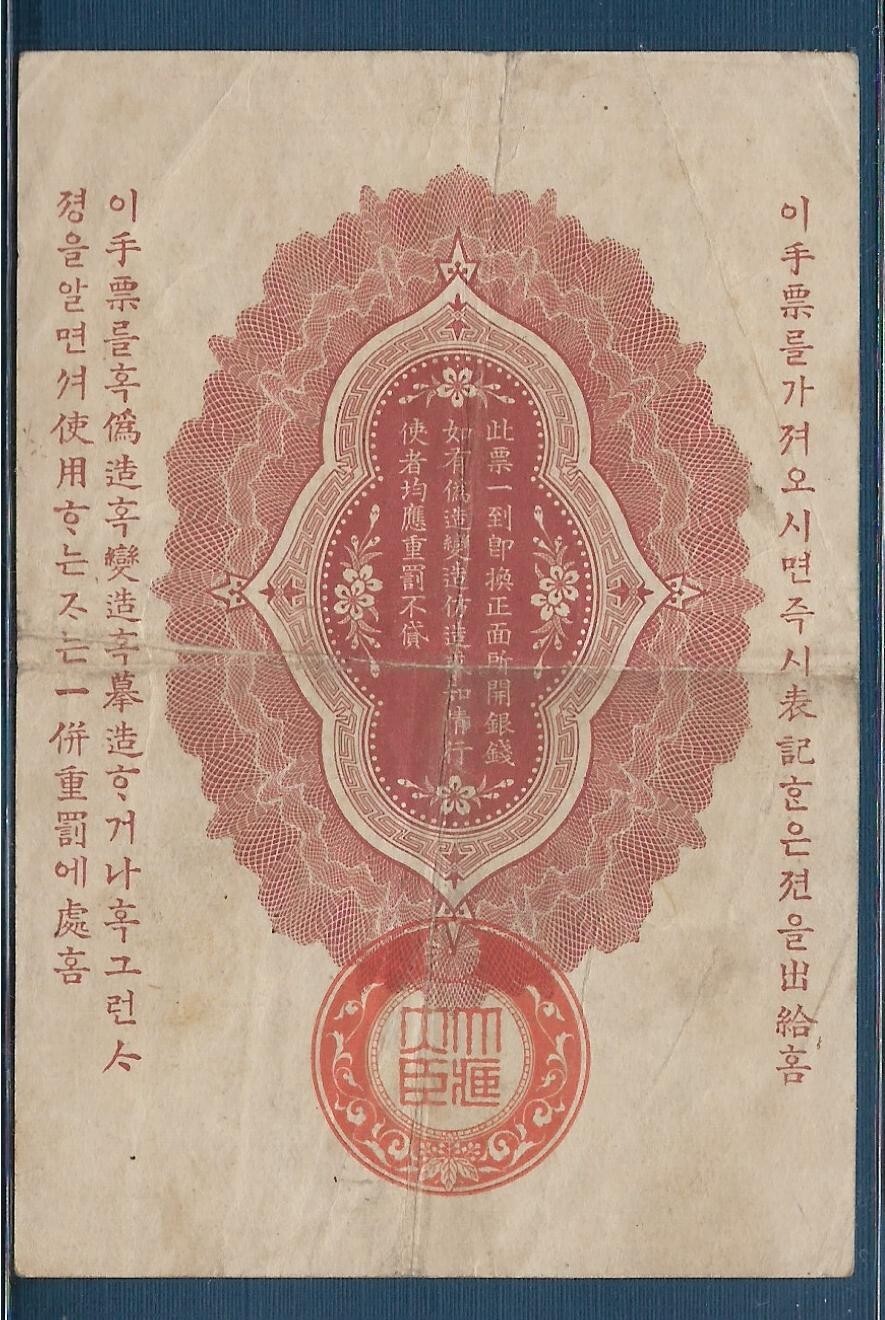 이手票를가져오시면즉시表記ᄒᆞᆫ은젼을出給홈
此票一到卽換正面所開銀錢
如有僞造變造仿造或知情行
使者均應重罰不貸
이手票를혹僞造혹變造혹摹造ᄒᆞ거나혹그런ᄉᆞ
졍을알면셔使用ᄒᆞ는ᄌᆞ는一倂重罰에處홈
大藏
大臣